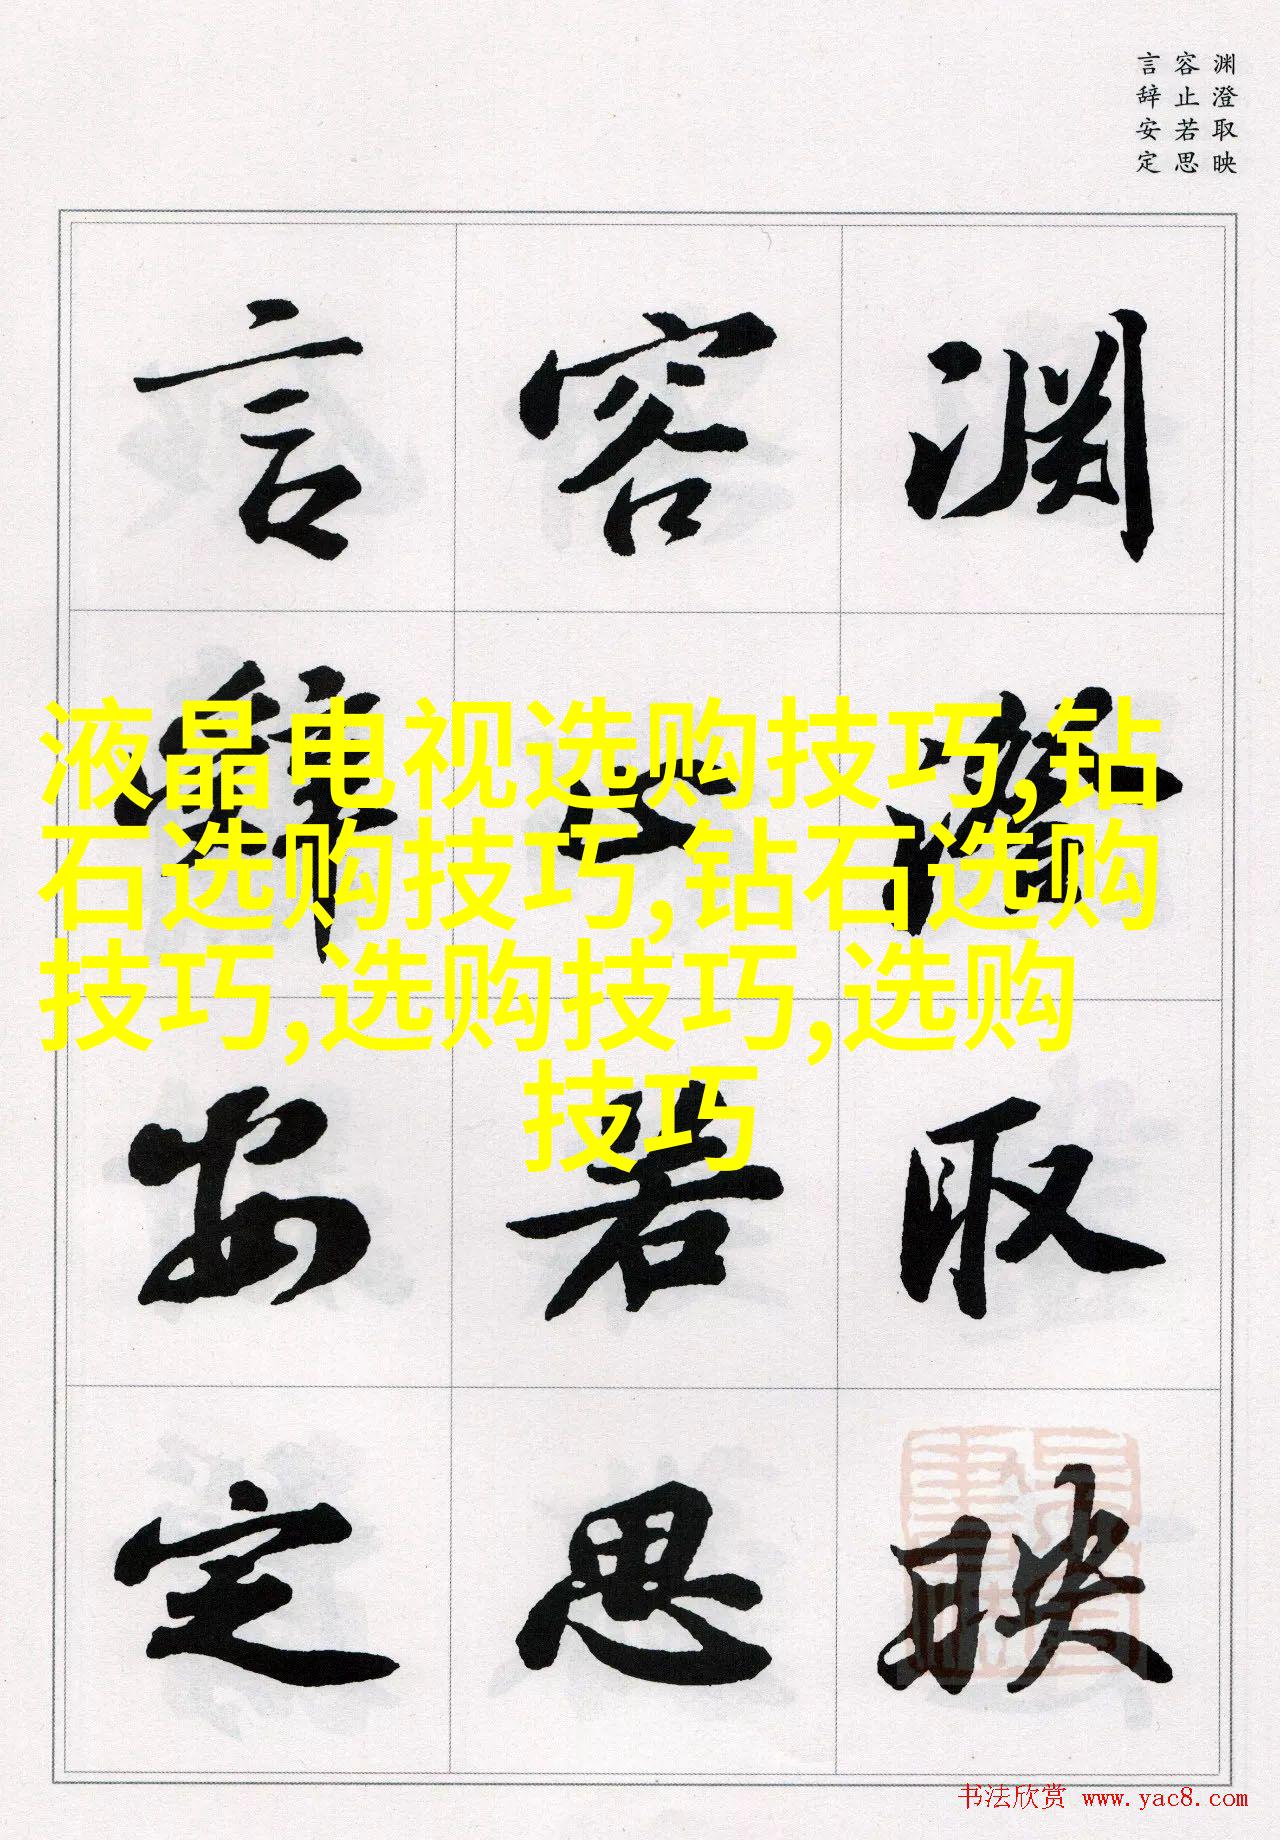 渊澄取映
容止若思
言辞安定
渊澄取映
容止若思
言辞安定
液晶电视选购技巧,钻
石选购技巧,钻石选购
技巧,选购技巧,选购
技巧
书法欣赏 www.yac8.com